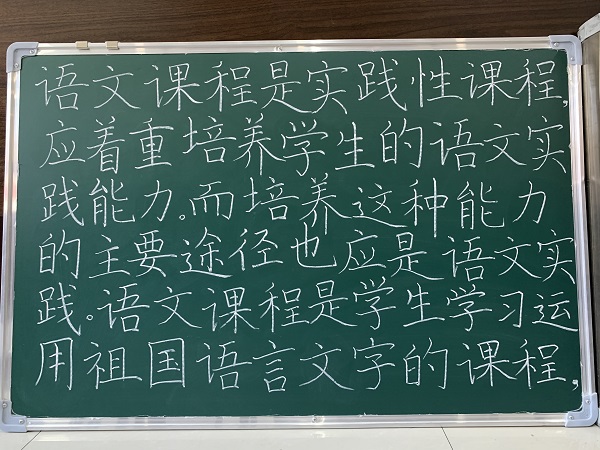 语文课程是实践性课程,
应着重培养学生的语文实
践能力。而培养这种能力
的主要途径也应是语文实
践。语文课程是学生学习运
用祖国语言文字的课程,